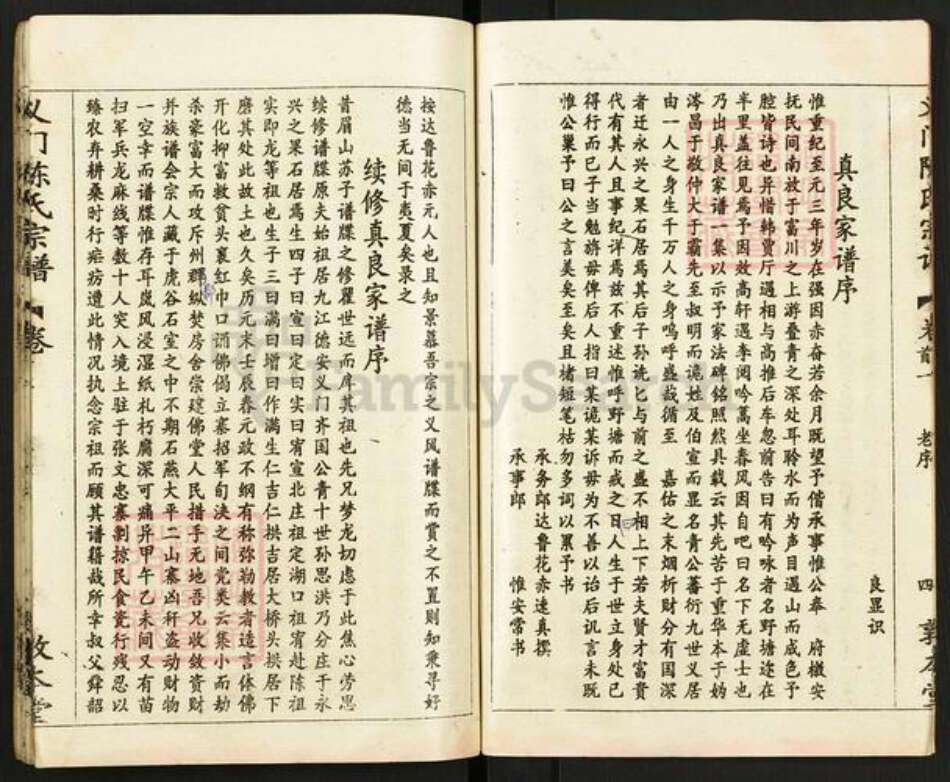 良显识
真良家谱序
惟重纪至元三年岁在强因赤奋若余月既望予偕承事惟公奉 府檄安
抚民间南故于富川之上游叠青之深处耳聆水而为声目遇山而成色予
腔皆诗也异惜韩贾厅遇相与高推后车忽前告曰有吟咏者名野塘迩在
半里盖往见焉予因效高轩遇李阅吟蒿坐春风因自吧曰名下无虚士也
乃出真良家谱一集以示予家法碑铭照然具载云其先苦于重华本于妫
涔昌于敬仲大于霸先至叔明而诡姓及伯宣而显名青公蕃衍九世义居
由一人之身生千万人之身呜呼盛哉循至 嘉佑之末烟析财分有国深
者迁永兴之果石居焉其后子孙诜匕与前之盛不相上下若夫贤才富贵
代有其人且事纪详焉兹不重述惟呼野塘而戒之曰人生于世立身处已
得行而已子当勉旃毋俾后人指曰某诡某诉毋为不善以诒后讥言未既
惟公粟予曰公之言美矣至矣且楮短笔枯勿多词以累予书
承务郎达鲁花赤速真撰
承事郎 惟安常书
义门陈氏宗谱 卷首一 老序 四 敦本堂
按达鲁花赤元人也且知景慕吾宗之义风谱牒而赏之不置则知秉寻好
德当无间于夷夏矣录之
续修真良家谱序
昔眉山苏子谱牒之修瞿世远而庠其祖也先兄梦龙切虑于此焦心劳思
续修谱牒原夫始祖居九江德安义门齐国公青十世孙思洪乃分庄于永
兴之果石居焉生四子曰宣曰定曰实曰宥宣北庄祖定湖口祖宥赴陈祖
实即龙等祖也生子三曰满曰增曰作满生仁吉仁拱吉居大桥头拱居下
磨其处此故土也久矣历元末壬辰春元政不纲有称弥勒教者造言体佛
开化抑富救贫头裹红巾口诵佛偈立寨招军旬浃之间党类云集小而劫
杀豪富大而攻斥州郡纵焚房舍崇建佛堂人民措手无地吾兄收敛资财
并族谱会宗人藏于虎谷石室之中不期石燕大平二山寨凶秆盗动财物
一空幸而谱牒惟存耳岚风浸湿纸札朽腐深可痛异甲午乙未间又有苗
扫军兵龙麻线等数十人突入境土驻于张文忠寨剽掠民食瓷行残忍以
臻农弃耕桑时行疟疠遭此情况执念宗祖而顾其谱籍哉所幸叔父舜韶
义门陈氏宗谱 卷 敦本堂
FamilySearch